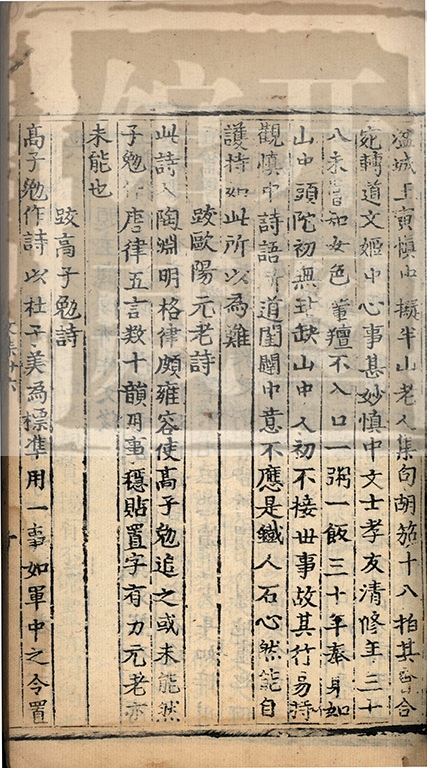 溢城王寅慎中擬半山老人集句胡笳十八拍其會合
宛轉道文姬中心事甚妙慎中文士孝友清修年三十
八未嘗知女色葷羶不入口一粥一飯三十年奉身如
山中頭陀初無玷缺山中人初不接世事故其行易持
觀慎中詩語道閨闥中意不應是鐵人石心然能自
護持如此所以為難
跋歐陽元老詩
此詩入陶淵明格律頗雍容使高子勉追之或未能然
子勉作唐律五言數十韻用事穩貼置字有力元老亦
未能也
跋高子勉詩
高子勉作詩以杜子美為標準用一事如軍中之令置